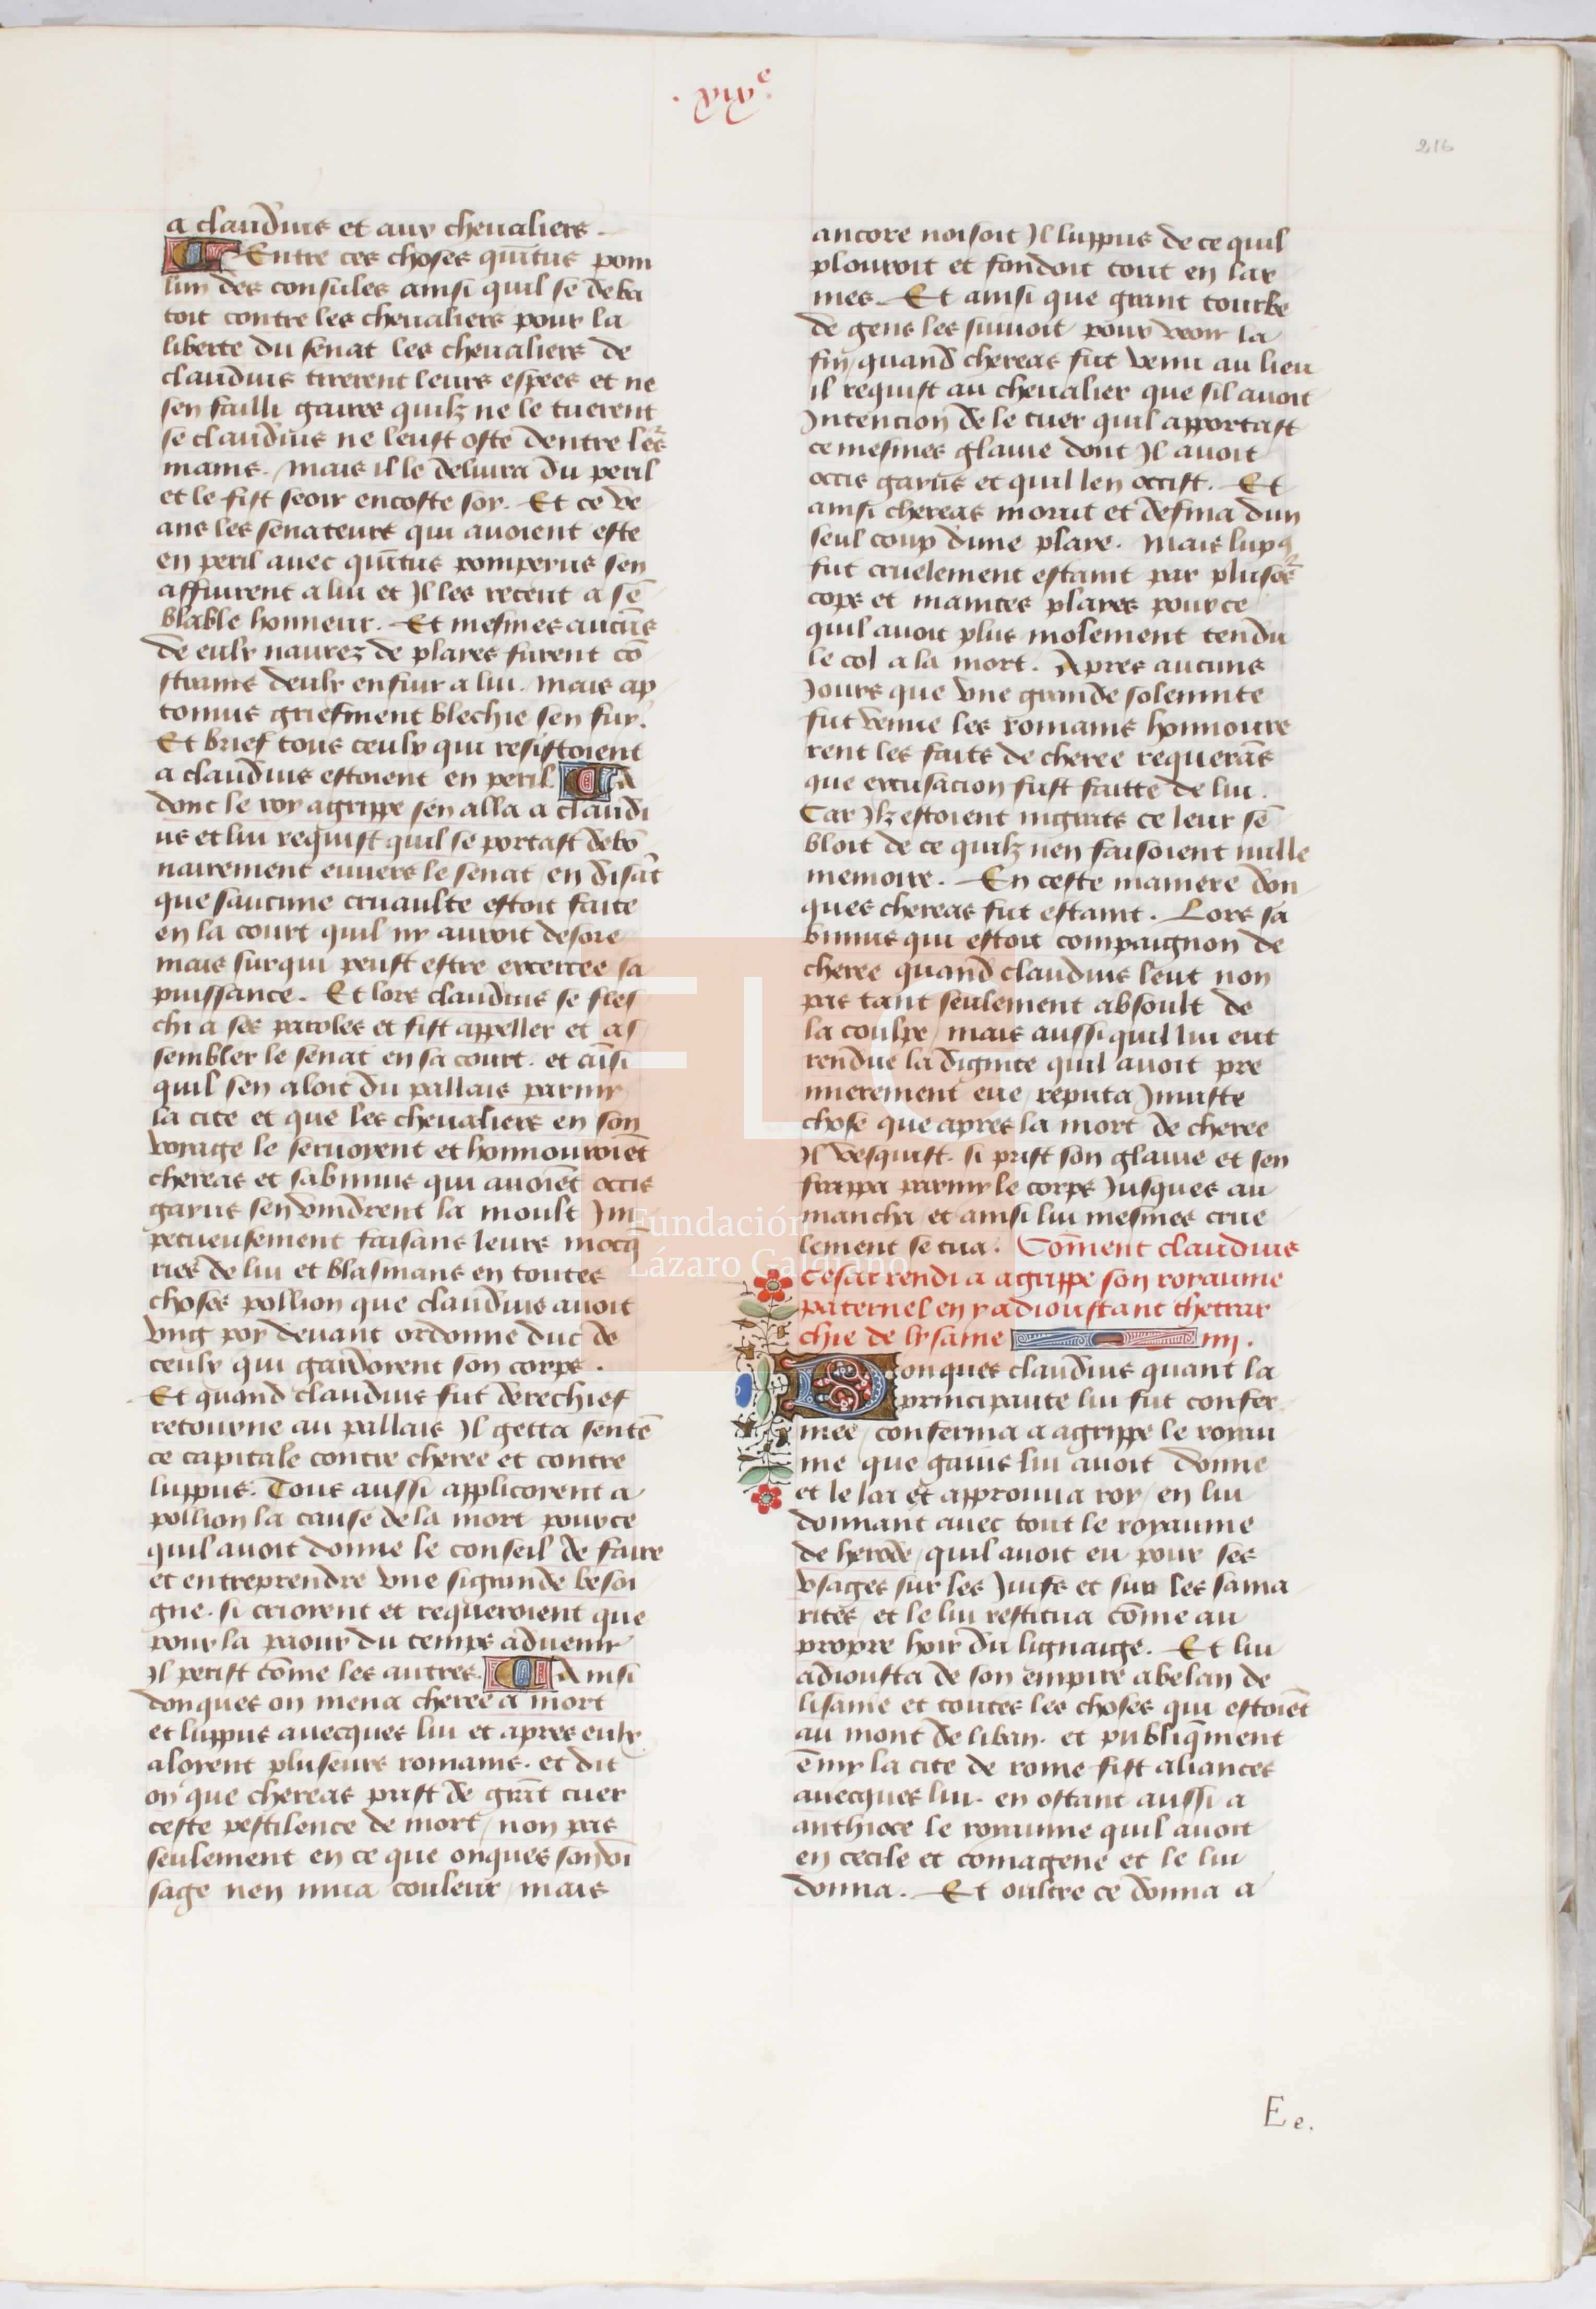 . xix e.
216
a claudius et aux cheualiers.
Entre ces choses quītus pom
lun des consules ainsi quil se deba
toit contre les cheualiers pour la
liberte du senat les cheualiers de
claudius tirerent leurs espees et ne
sen failli gaires quilz ne le tuerent
se claudius ne leust oste dentre leᵉs
mains. Mais il le deliura du peril
et le fist seoir encoste soy. Et ce ve
ans les senateurs qui auoient este
en peril auec quītus pompeyus sen
affuirent a lui et Il les receut a sē
blable honneur. Et mesmes aucūs
de eulx naurez de playes furent cō
strains deulx enfuir a lui. Mais ap
tonius griefment blechie sen fuy.
Et brief tous ceulx qui resistoient
a claudius estoient en peril A
donc le roy agrippe sen alla a claudi
us et lui requist quil se portast debō
nairement enuers le senat en disāt
que saucune cruaulte estoit faite
en la court quil ny auroit desore
mais surqui peust estre excercee sa
puissance. Et lors claudius se fles
chi a ses paroles et fist appeller et as
sembler le senat en sa court. et aīsi
quil sen aloit du pallais parmy
la cite et que les cheualiers en son
voyage le seruoyent et honnouroiēt
chereas et sabinus qui auoiēt occis
gayus sen vindrent la moult Im
petueusement faisans leurs mocq̄
ries de lui et blasmans en toutes
choses pollion que claudius auoit
vng poy deuant ordonne duc de
ceulx qui gardoyent son corps.
Et quand claudius fut derechief
retourne au pallais Il getta sentē
ce capitale contre cheree et contre
luppus. Tous aussi applicoyent a
pollion la cause de la mort pource
quil auoit donne le conseil de faire
et entreprendre vne sigrande besoi
gne. si crioyent et requeroient que
pour la paour du temps aduenir
Il perist cōme les autres. Ainsi
donques on mena cheree a mort
et luppus auecques lui et apres eulx
aloyent pluseurs romains. et dit
on que chereas prist de grāt cuer
ceste pestilence de mort, non pas
seulement en ce que onques son vi
sage nen mua couleur, mais
ancore noisoit Il luppus de ce quil
plouroit et fondoit tout en lar
mes. Et ainsi que grant tourbe
de gens les suiuoit pour veoir la
fin, quand chereas fut venu au lieu
il requist au cheualier que sil auoit
Intencion de le tuer quil apportast
ce mesmes glaiue dont Il auoit
occis gayus et quil len occist. Et
ainsi chereas morut et defina dun
seul coup dune playe. Mais lupꝯ
fut cruelement estaint par pluseᵉs
cops et maintes playes pource
quil auoit plus molement tendu
le col a la mort. Apres aucuns
Iours que vne grande solemnite
fut venue les romains honnoure
rent les faits de cheree requerās
que excusacion fust faitte de lui.
Car Ilz estoient ingrats ce leur sē
bloit de ce quilz nen faisoient nulle
memoire. En ceste maniere don
ques chereas fut estaint. Lors sa
binus qui estoit compaignon de
cheree quand claudius leut non
pas tant seulement absoult de
la coulpe, mais aussi quil lui eut
rendue la dignite quil auoit pre
mierement eue, reputa Iniuste
chose que apres la mort de cheree
Il vesquist. si prist son glaiue et sen
frappa parmy le corps Iusques au
mancha, et ainsi lui mesmes crue
lement se tua. Cōment claudius
cesar rendi a agrippe son royaume
paternel en y adioustant thetrar
chie de lysanie iiii.
Donques claudius quant la
principaute lui fut confer
mee, conferma a agrippe le royau
me que gaius lui auoit donne
et le lai et approuua roy, en lui
donnant auec tout le royaume
de herode, quil auoit eu pour ses
vsages sur les Iuifs et sur les sama
rites, et le lui restitua cōme au
propre hoir du lignaige. Et lui
adiousta de son empire abelan de
lisanie et toutes les choses qui estoiēt
au mont de liban. et publiq̄ment
ēmy la cite de rome fist aliances
auecques lui. en ostant aussi a
anthioce le royaume quil auoit
en cecile et comagene et le lui
donna. Et oultre ce donna a
E e.
Fundación
Lázaro Galdiano